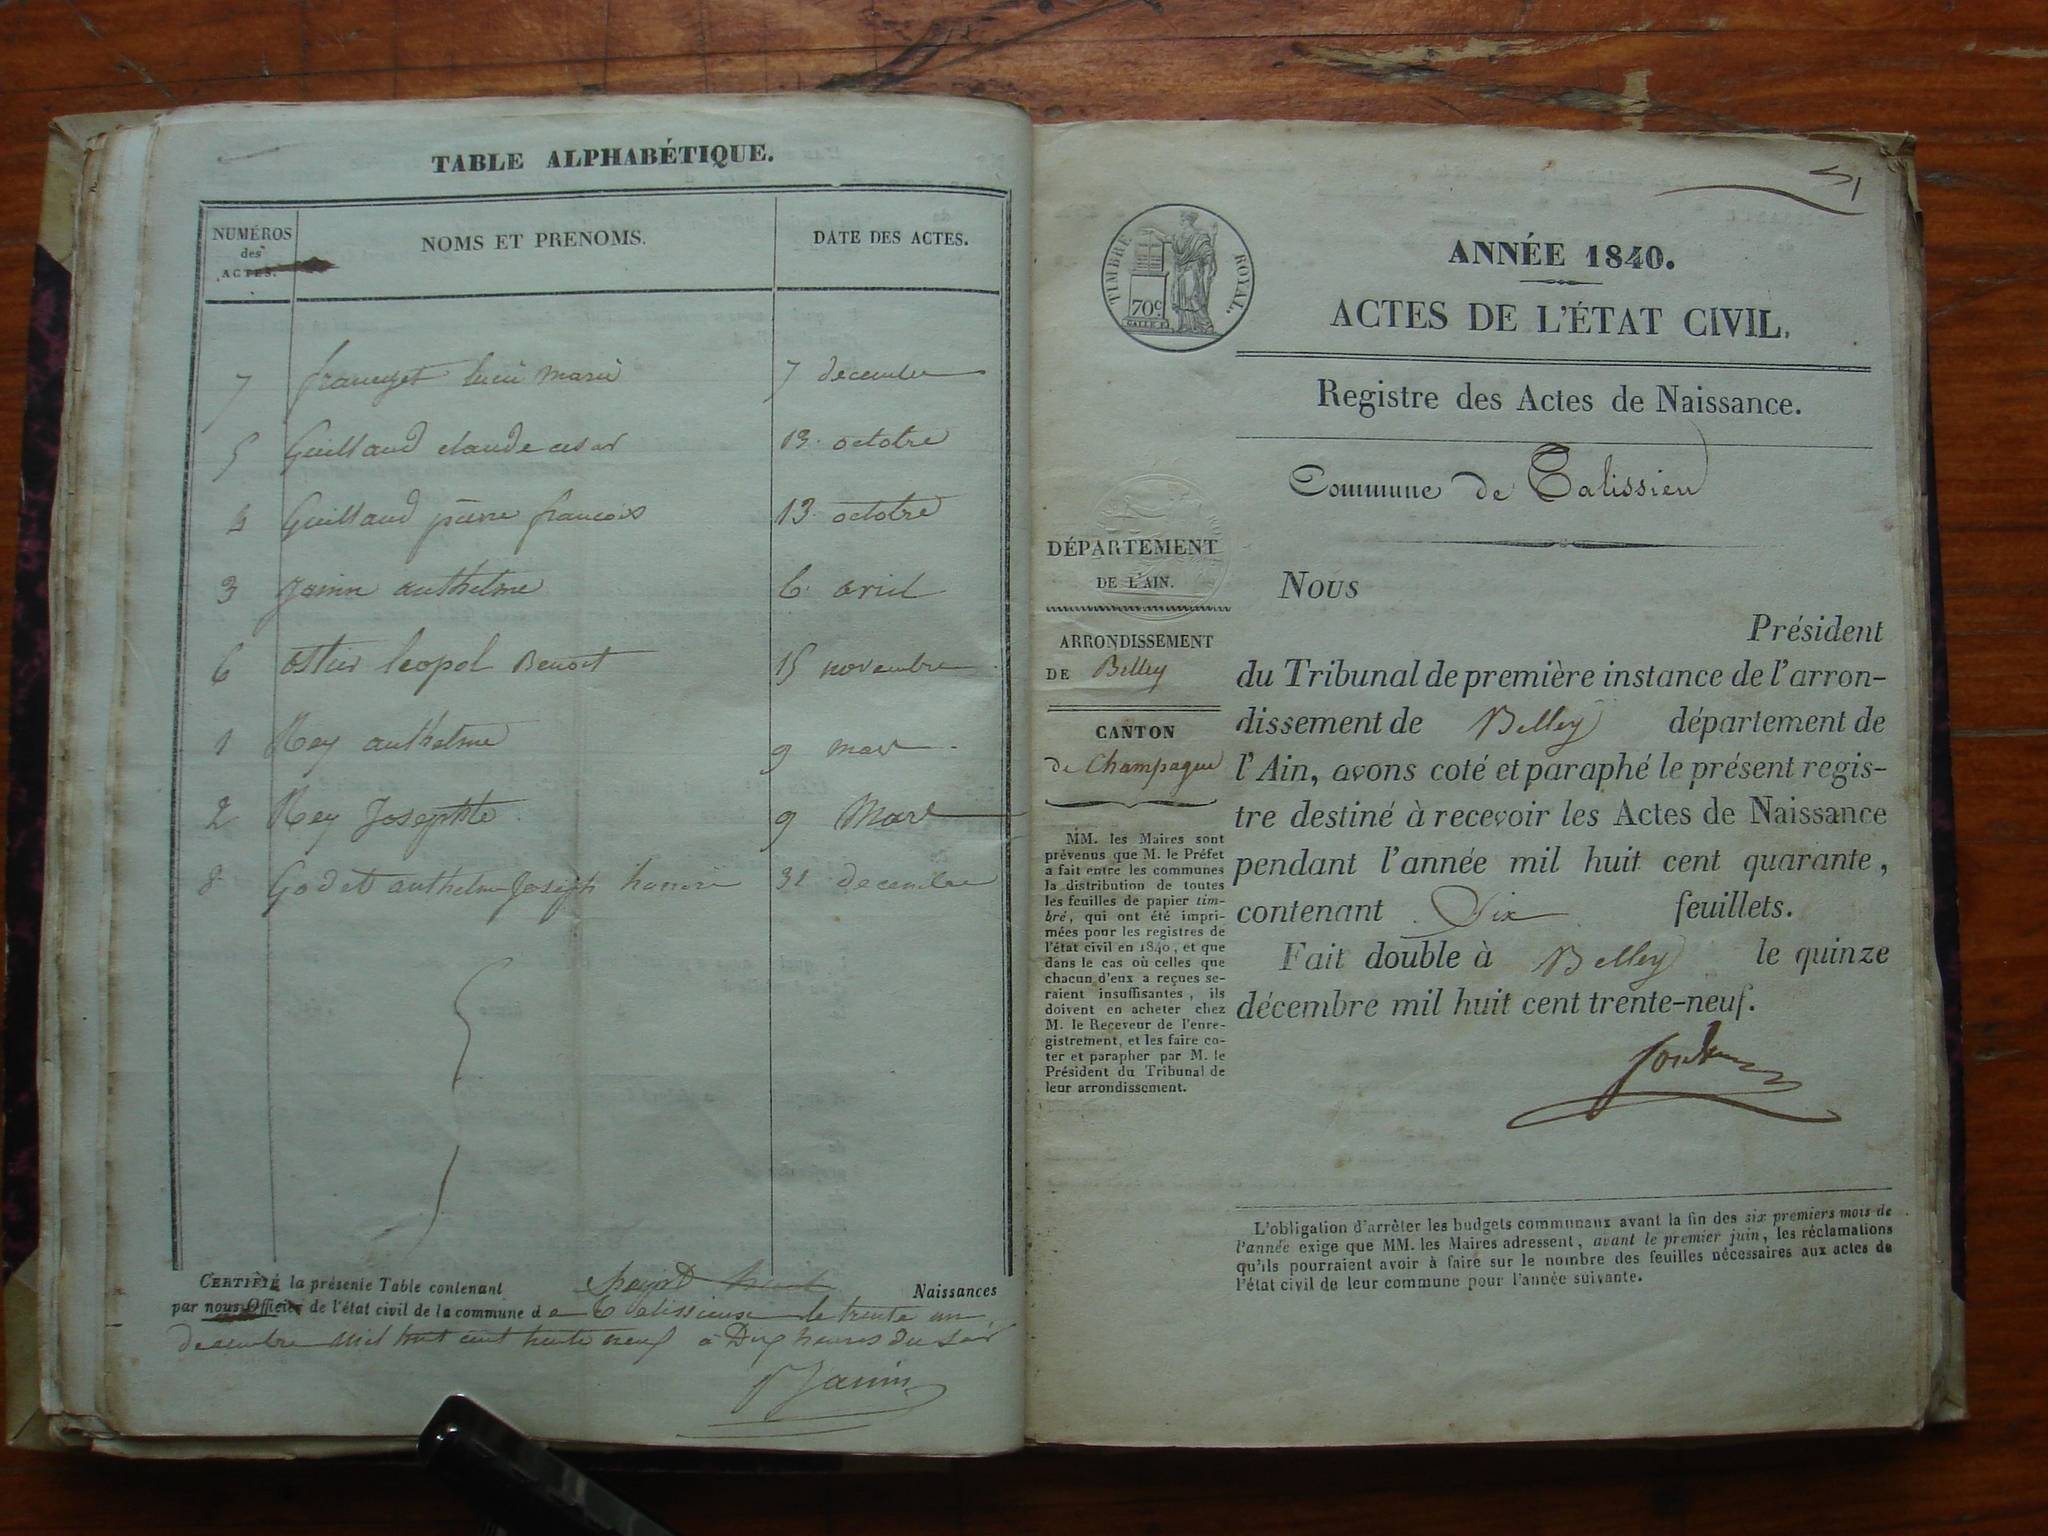 TABLE ALPHABÉTIQUE.
NUMÉROS
des
ACTES.
NOMS ET PRENOMS.
DATE DES ACTES.
7 lucie marie 7 decembre
5 Guilland claude cesar 13 octobre
4 Guilland pierre francois 13 octobre
3 Janin anthelme 6 avril
6 leopol Benoit 15 novembre
1 Rey anthelme 9 mars
2 Rey Josephte 9 Mars
8 Godet anthelme Joseph honoré 31 decembre
CERTIFIÉ la présente Table contenant huit Naissances
par nous Officier de l'état civil de la commune de Talissieux le trente un
decembre mil huit cent trente neuf à Dix heures du soir
Janin
51
TIMBRE ROYAL.
70c
ANNÉE 1840.
ACTES DE L'ÉTAT CIVIL.
Registre des Actes de Naissance.
Commune de Talissieu
DÉPARTEMENT
DE L'AIN.
ARRONDISSEMENT
DE Belley
CANTON
de Champagne
MM. les Maires sont
prévenus que M. le Préfet
a fait entre les communes
la distribution de toutes
les feuilles de papier tim-
bré, qui ont été impri-
mées pour les registres de
l'état civil en 1840, et que
dans le cas où celles que
chacun d'eux a reçues se-
raient insuffisantes, ils
doivent en acheter chez
M. le Receveur de l'enre-
gistrement, et les faire co-
ter et parapher par M. le
Président du Tribunal de
leur arrondissement.
Nous
Président
du Tribunal de première instance de l'arron-
dissement de Belley département de
l'Ain, avons coté et paraphé le présent regis-
tre destiné à recevoir les Actes de Naissance
pendant l'année mil huit cent quarante,
contenant Six feuillets.
Fait double à Belley le quinze
décembre mil huit cent trente-neuf.
L'obligation d'arrêter les budgets communaux avant la fin des six premiers mois de
l'année exige que MM. les Maires adressent, avant le premier juin, les réclamations
qu'ils pourraient avoir à faire sur le nombre des feuilles nécessaires aux actes de
l'état civil de leur commune pour l'année suivante.